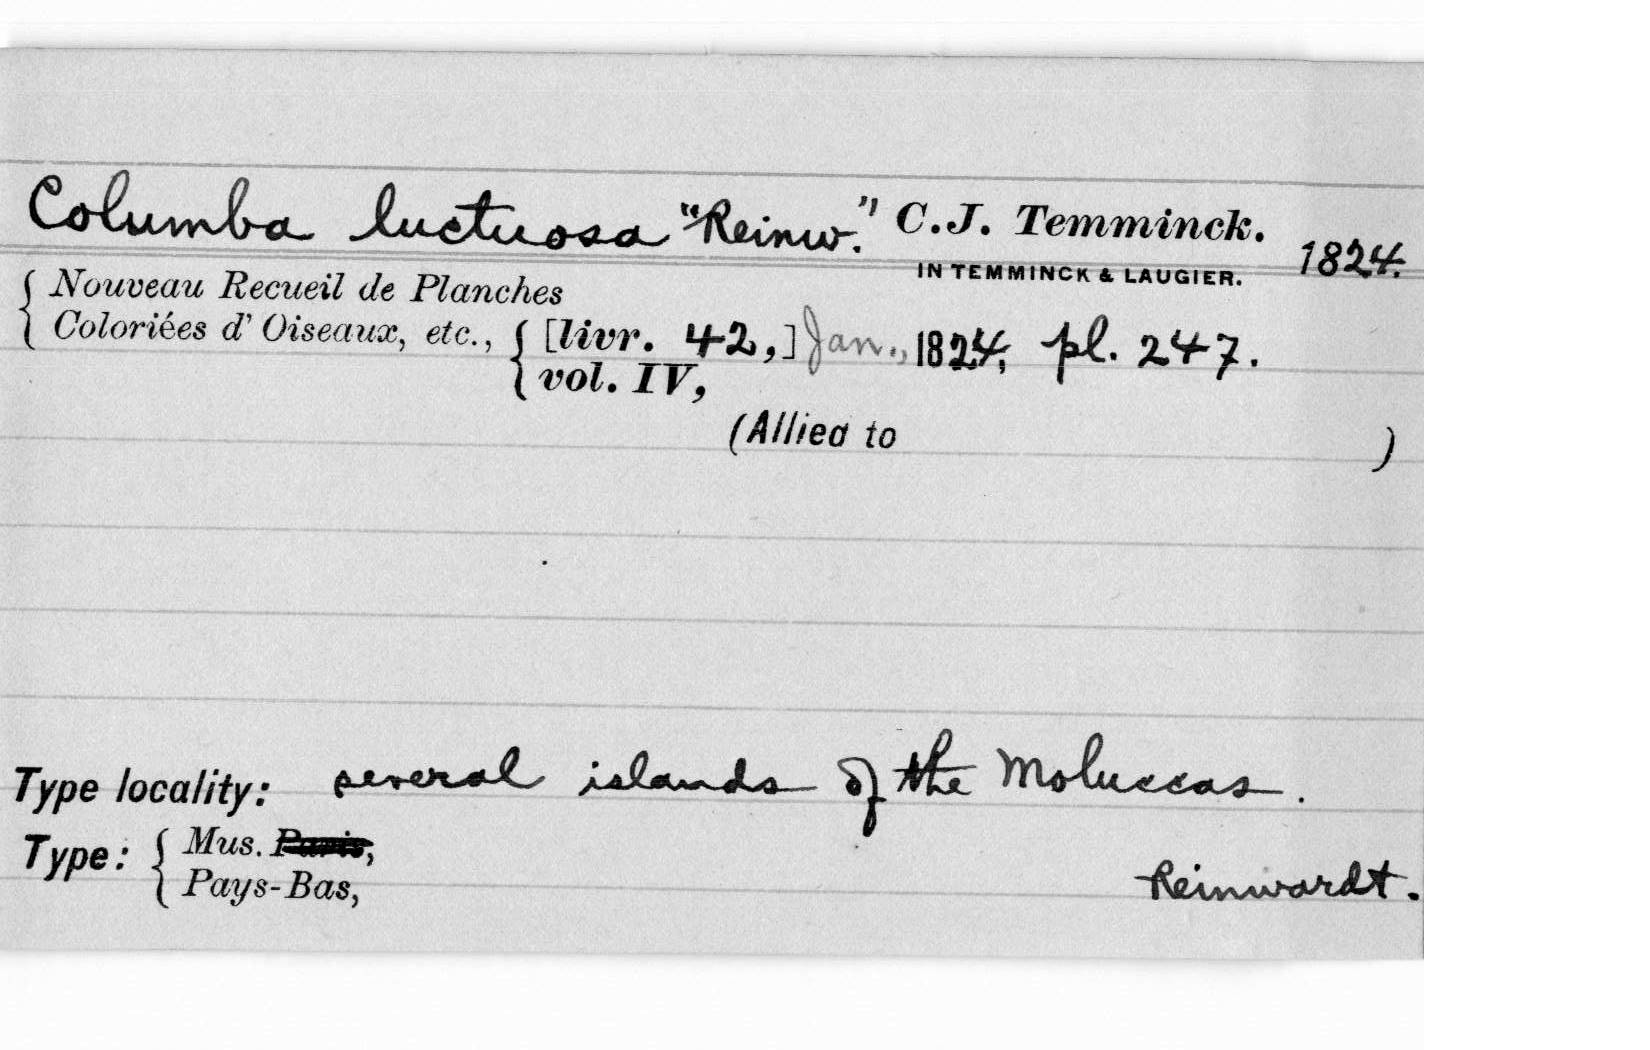 Columba luctuosa "Reinw." C.J. Temminck.
IN TEMMINCK & LAUGIER. 1824.
{ Nouveau Recueil de Planches
Coloriées d' Oiseaux, etc., { [livr. 42,] Jan., 1824, pl. 247.
vol. IV,
(Allied to )
Type locality: several islands of the Moluccas.
Type: { Mus. Paris,
Pays-Bas, Reinwardt.